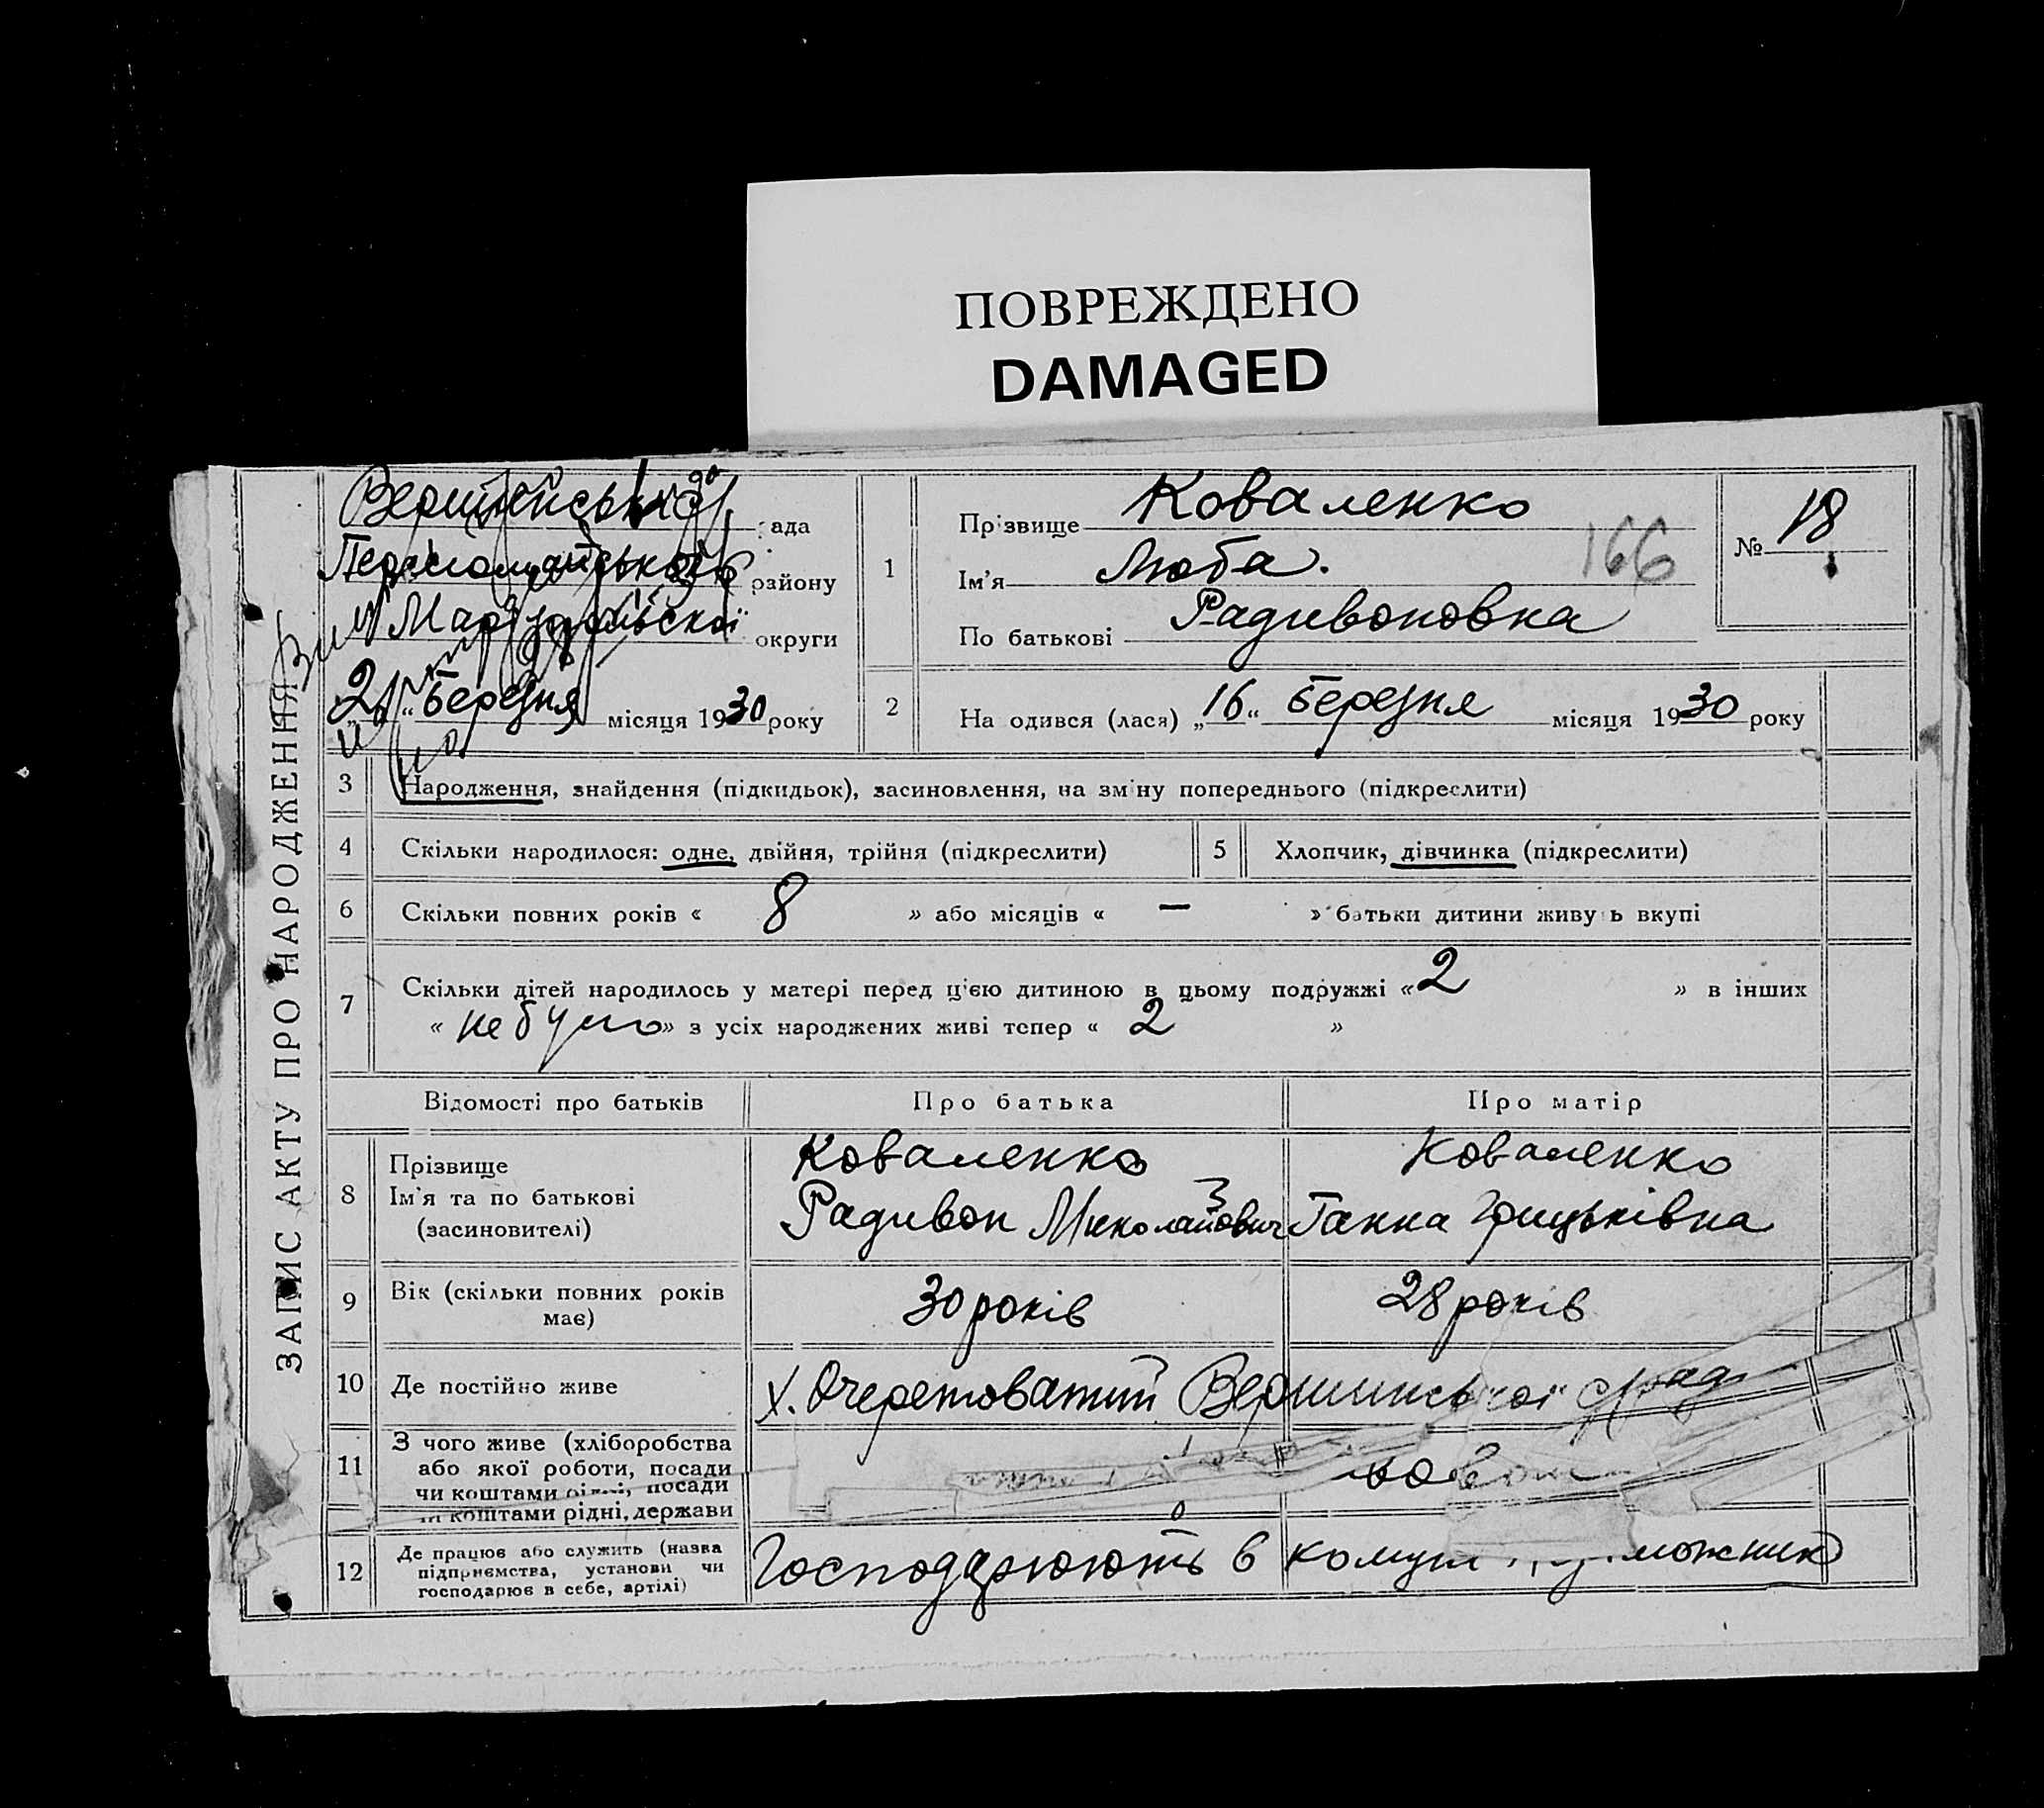 ПОВРЕЖДЕНО
DAMAGED
ЗАПИС АКТУ ПРО НАРОДЖЕННЯ
рада
району
Маріупольскої округи
Березня місяця 1930 року
1
Прізвище Коваленко
Ім'я Люба.
По батькові Радивоновка
166
№ 18
2
На одився (лася) „16“ Березня місяця 1930 року
3 Народження, знайдення (підкидьок), засиновлення, на зміну попереднього (підкреслити)
4 Скільки народилося: одне, двійня, трійня (підкреслити)
5 Хлопчик, дівчинка (підкреслити)
6 Скільки повних років « 8 » або місяців « — » батьки дитини живуть вкупі
7 Скільки дітей народилось у матері перед ц'єю дитиною в цьому подружжі «2 » в інших
« не було» з усіх народжених живі тепер « 2 »
Відомості про батьків Про батька Про матір
8
Прізвище Коваленко Коваленко
Ім'я та по батькові Радивон Миколайович Ганна Грицьківна
(засиновителі)
9 Вік (скільки повних років 30 років 28 років
має)
10 Де постійно живе х. Очеретоватий Вершинської
11
З чого живе (хліборобства
або якої роботи, посади
чи коштами рідні, посади
коштами рідні, держави
12
Де працює або служить (назва
підприємства, установи чи
господарює в себе, артілі)
Господарюють в